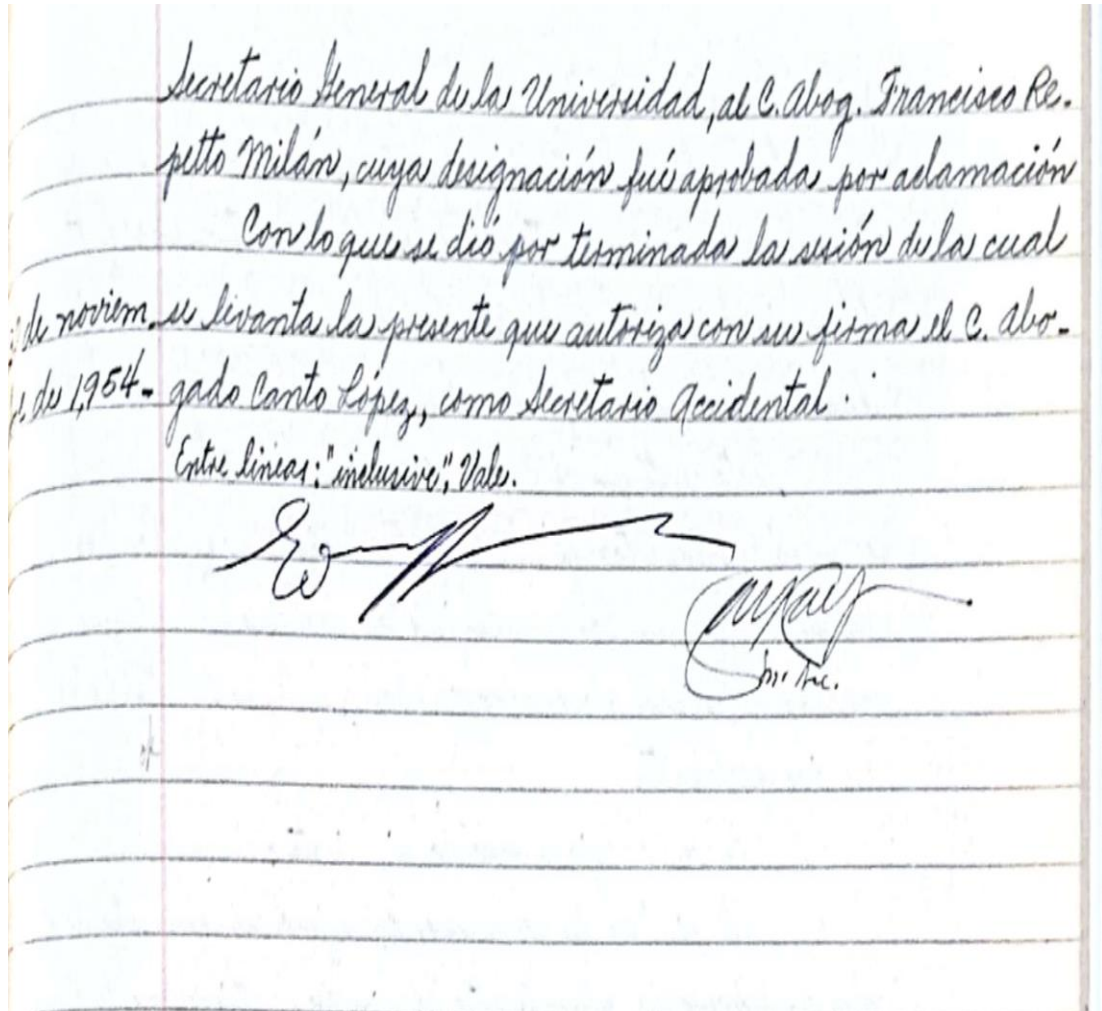 Secretario General de la Universidad, al C. Abog. Francisco Re-
petto Milán, cuya designación fué aprobada por aclamación
Con lo que se dió por terminada la sesión de la cual
de noviem- se levanta la presente que autoriza con su firma el C. Abo-
de 1,954- gado Canto López, como Secretario Accidental.
Entre líneas: "inclusive", Vale.